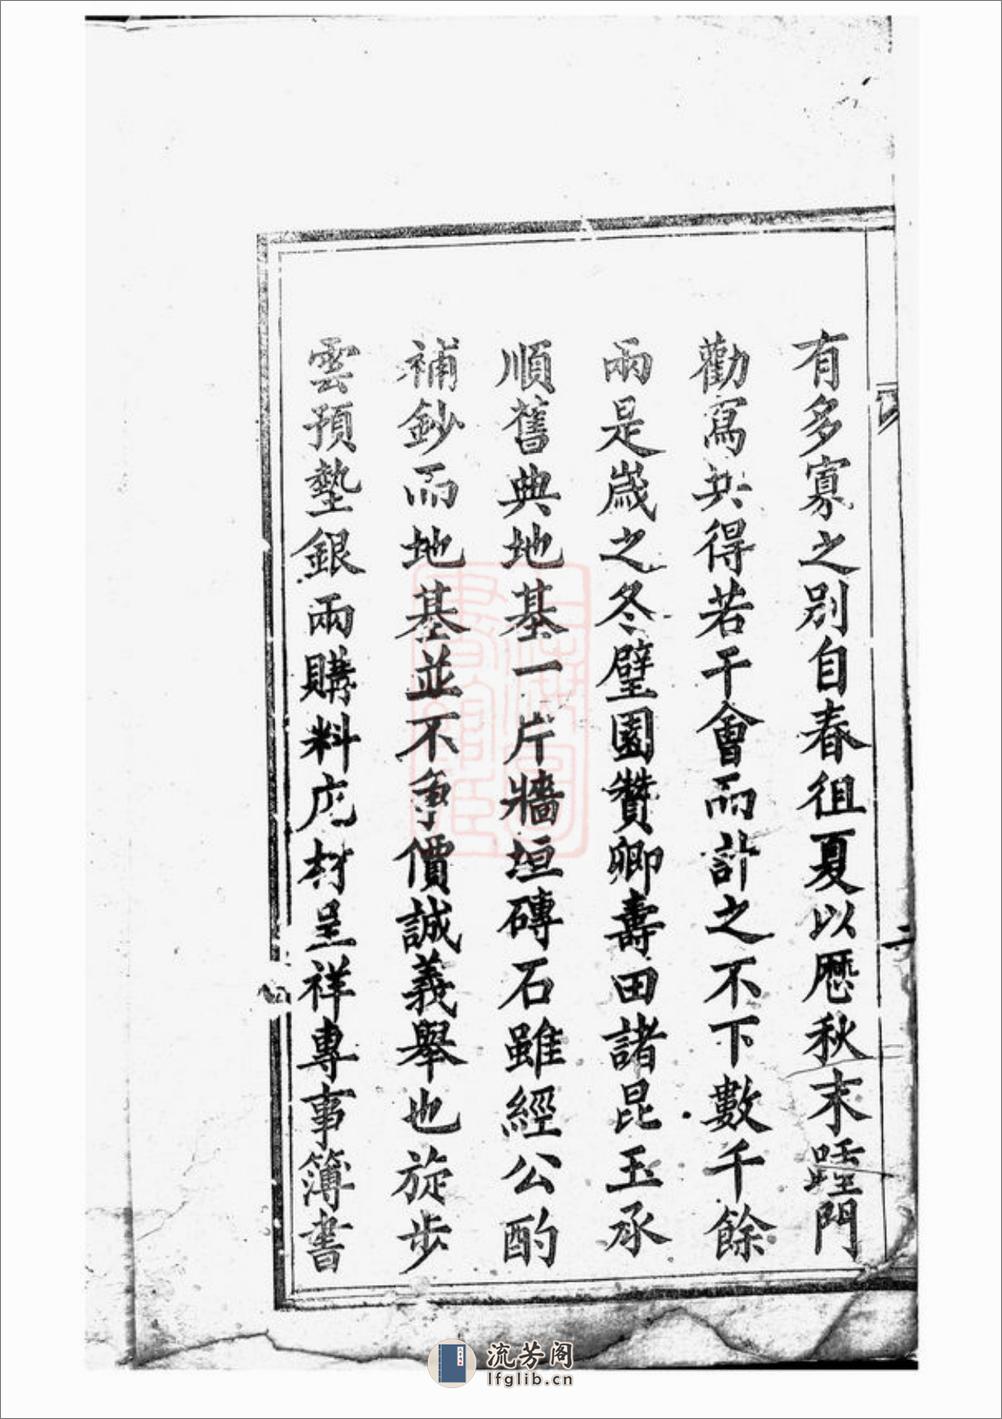 有多寡之別自春徂夏以歷秋末踵門
勸寫共得若干會而計之不下數千餘
兩是歲之冬璧園贊卿壽田諸昆玉承
順舊典地基一片牆垣磚石雖經公酌
補鈔而地基並不爭價誠義舉也旋步
雲預墊銀兩購料庀材呈祥專事簿書
二
流芳阁
lfglib.cn